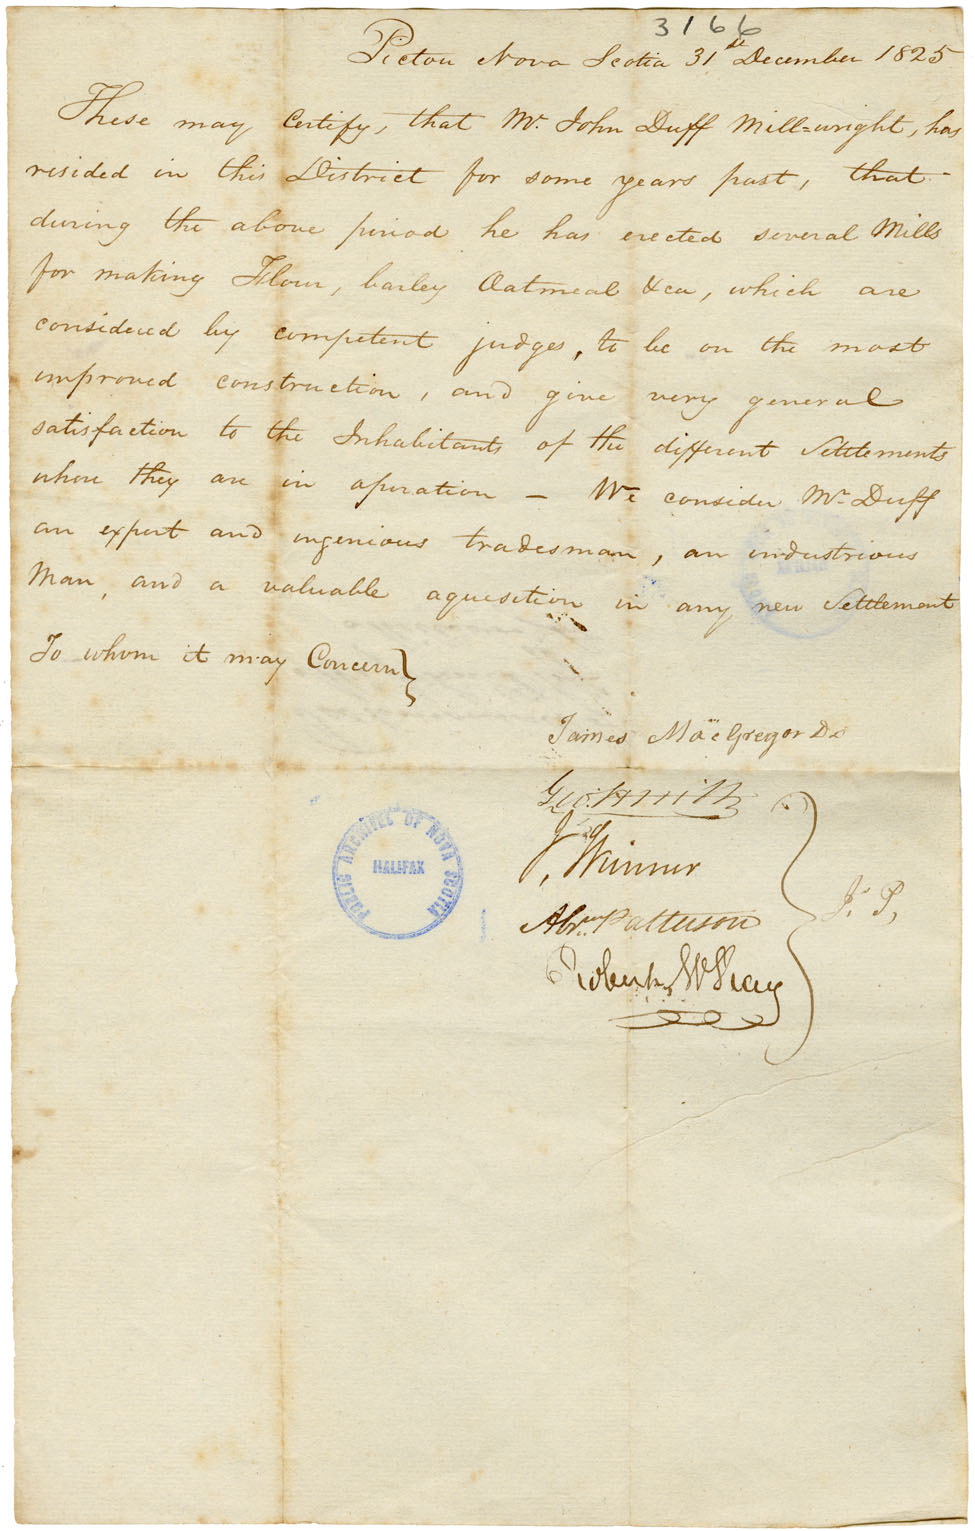 3166
Pictou Nova Scotia 31st December 1825
These may Certify, that Mr. John Duff Mill=wright, has
resided in this District for some years past, that
during the above period he has erected several Mills
for making Flour, barley Oatmeal &ca, which are
considered by competent judges, to be on the most
improved construction, and give very general
satisfaction to the Inhabitants of the different Settlements
where they are in operation – We consider Mr. Duff
an expert and ingenious tradesman, an industrious
Man, and a valuable aquesition in any new Settlement
To whom it may Concern
James MacGregor DD
Geo. Smith
Abrm Patterson
Robert
J. P.
PUBLIC ARCHIVES OF NOVA SCOTIA
HALIFAX